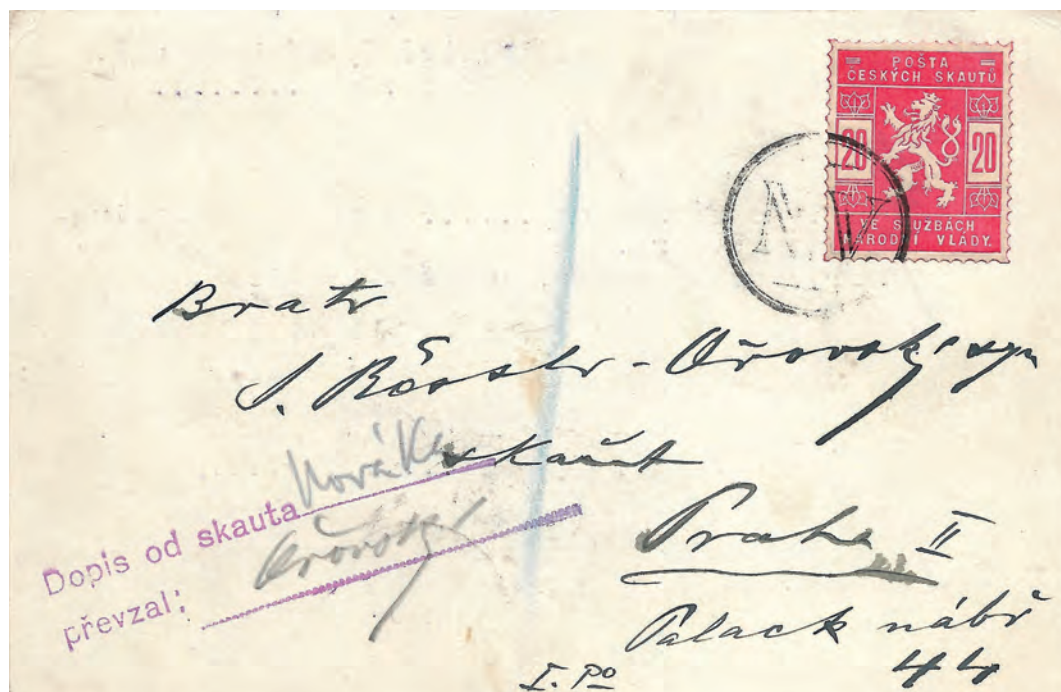 POŠTA
ČESKÝCH SKAUTŮ
20 20
VE SLUŽBÁCH
NÁRODNÍ VLÁDY.
N.V.
Bratr
J. Rössler-Ořovský syn
skaut
Praha II
Palack nábř
44
I. Po
Dopis od skauta Nováka
převzal: Ořovský